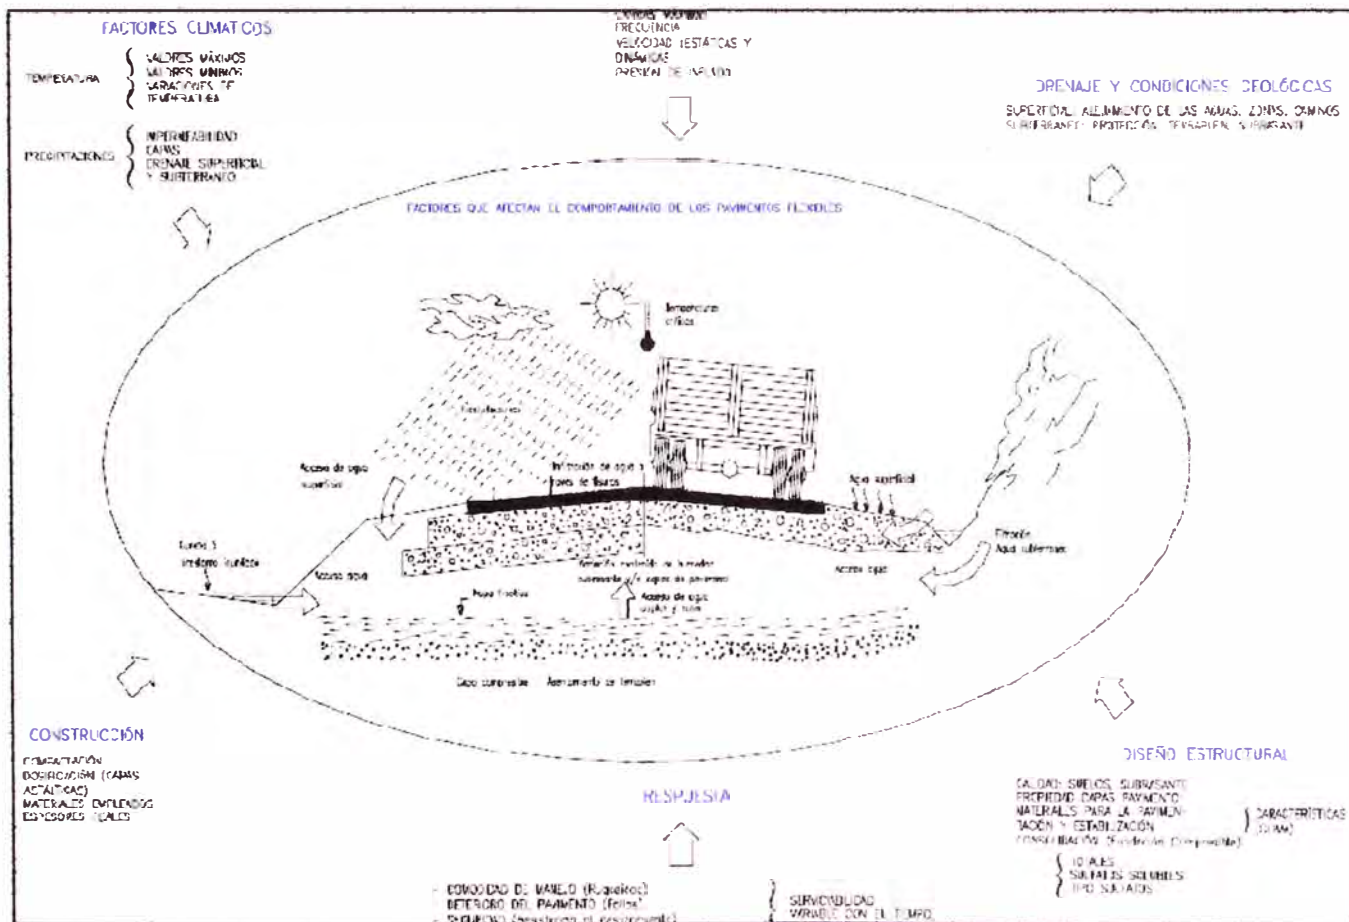 FACTORES CLIMATICOS
TEMPERATURA
VALORES MÁXIMOS
VALORES MÍNIMOS
VARIACIONES DE
TEMPERATURA
PRECIPITACIONES
IMPERMEABILIDAD
CAPAS
DRENAJE SUPERFICIAL
Y SUBTERRANEO
FRECUENCIA
VELOCIDAD (ESTÁTICAS Y
DINÁMICAS
PRESION DE INFLADO
DRENAJE Y CONDICIONES GEOLÓGICAS
SUPERFICIAL: ALEJAMIENTO DE LAS AGUAS, ZONAS, CAMINOS
SUBTERRANEO: PROTECCIÓN, TERRAPLEN, SUBRASANTE
FACTORES QUE AFECTAN EL COMPORTAMIENTO DE LOS PAVIMENTOS FLEXIBLES
Temperaturas
críticas
Precipitaciones
Acceso de agua
superficial
Infiltración de agua a
traves de fisuras
Agua superficial
Filtración
Agua subterranea
Acceso agua
Acceso agua
Napa freática
Acceso de agua
Capa compresible Asentamiento de terraplen
CONSTRUCCIÓN
COMPACTACIÓN
DOSIFICACIÓN (CAPAS
ASFÁLTICAS)
MATERIALES EMPLEADOS
ESPESORES REALES
RESPUESTA
- COMODIDAD DE MANEJO (Rugosidad)
- DETERIORO DEL PAVIMENTO (Fallas)
- SEGURIDAD
SERVICIABILIDAD
VARIABLE CON EL TIEMPO
DISEÑO ESTRUCTURAL
CALIDAD: SUELOS, SUBRASANTE
PROPIEDAD CAPAS PAVIMENTO
MATERIALES PARA LA PAVIMEN-
TACIÓN Y ESTABILIZACIÓN
CARACTERÍSTICAS
CONSOLIDACIÓN (Fundación Compresible)
TOTALES
SULFATOS SOLUBLES
TIPO SULFATOS